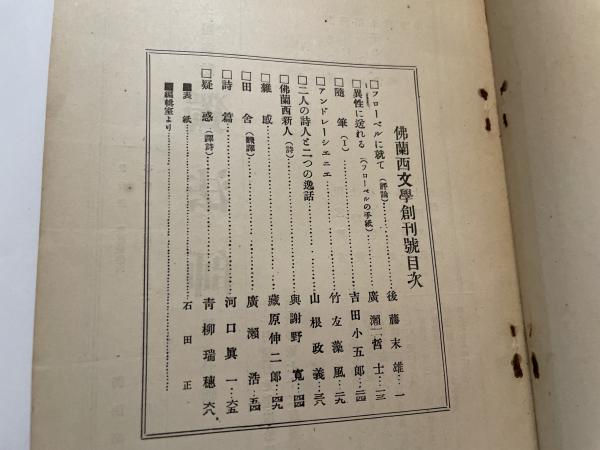 佛蘭西文學創刊號目次
□フローベルに就て(評論)……後藤末雄…一
□異性に近れる(フローベルの手紙)……廣瀨哲士…一三
□隨筆(1)……吉田小五郎…二四
□アンドレーシエニエ……竹友藻風…二九
□二人の詩人と二つの逸話……山根政義…三八
□佛蘭西新人(詩)……與謝野寬…四四
□雜感……藏原伸二郎…四九
□田舍(飜譯)……廣瀨浩…五四
□詩篇……河口眞一…六五
□疑惑(譯詩)……靑柳瑞穗…六八
■表紙……石田正
■編輯室より……